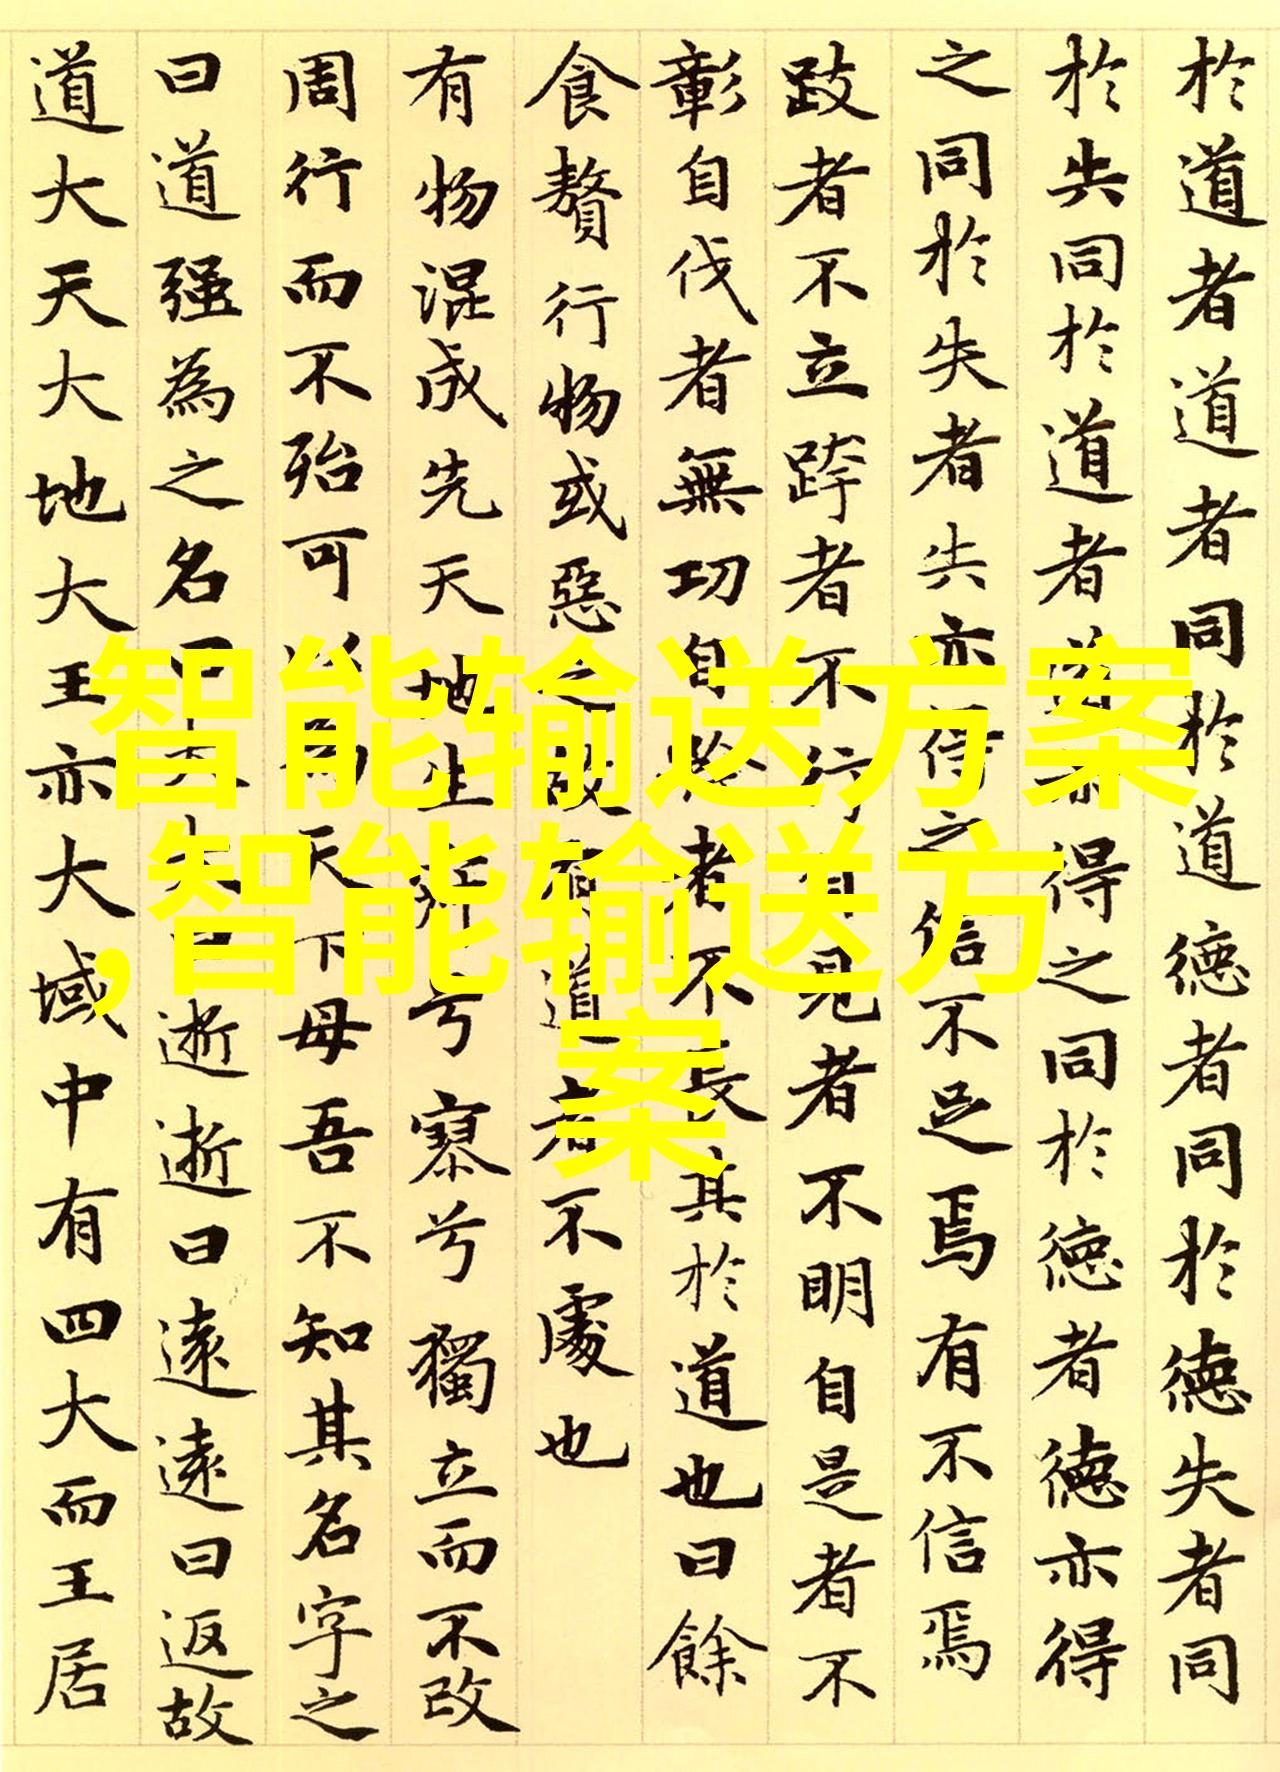 於道者道者同於道德者同於德失者同
於失同於道者道亦得之同於德者德亦得
之同於失者失亦得之信不足焉有不信焉
跂者不立跨者不行自見者不明自是者不
彰自伐者無功自矜者不長其於道也曰餘
食贅行物或惡之故有道者不處也
有物混成先天地生寂兮寥兮獨立而不改
周行而不殆可以為天下母吾不知其名字之
曰道强為之名曰大大曰逝逝曰遠遠曰返故
道大天大地大王亦大域中有四大而王居
智能输送方案
,智能输送方
案